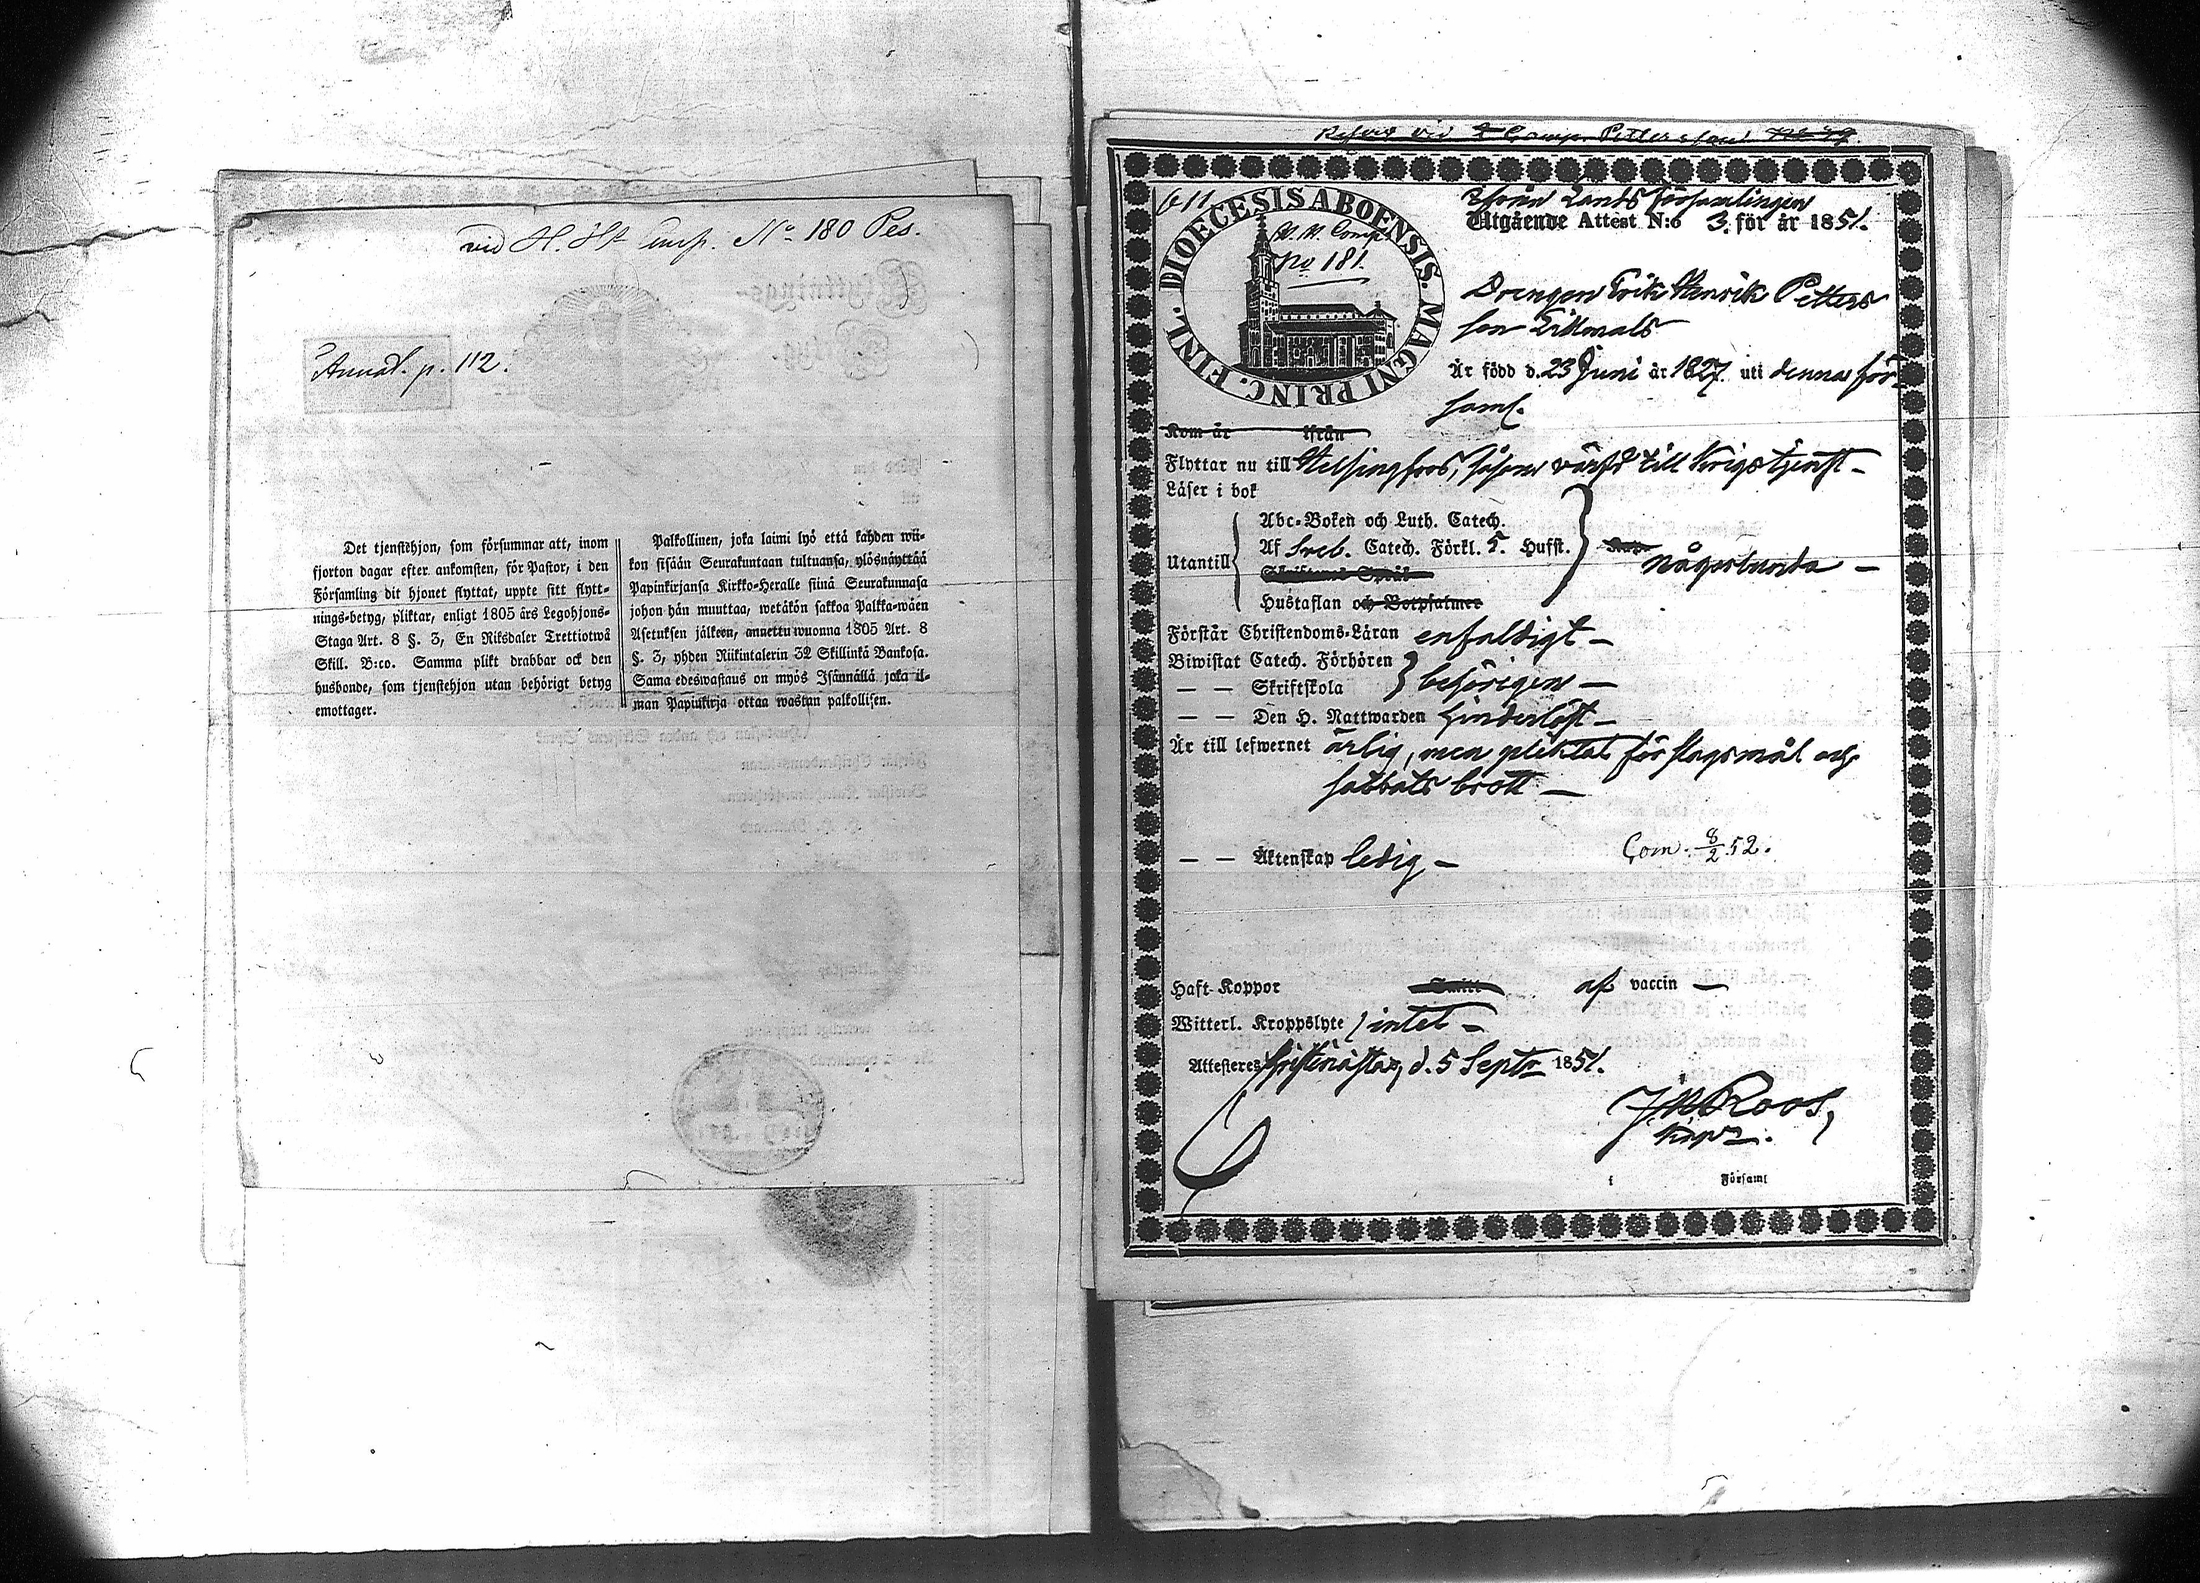 vid H. Hst comp. No 180 Pes.
Anmäl. p. 112.
Det tjenstehjon, som försummar att, inom
fjorton dagar efter ankomsten, för Pastor, i den
Församling dit hjonet flyttat, uppte sitt flytt-
nings-betyg, pliktar, enligt 1805 års Legohjons-
Staga Art. 8 §. 3, En Riksdaler Trettiotwå
Skill. B:co. Samma plikt drabbar ock den
husbonde, som tjenstehjon utan behörigt betyg
emottager.
Palkollinen, joka laimi lyö että kahden wii-
kon sisään Seurakuntaan tultuansa, ylösnäyttää
Papinkirjansa Kirkko-Heralle siinä Seurakunnasa
johon hän muuttaa, wetäkön sakkoa Palkka-wäen
Asetuksen jälkeen, annettu wuonna 1805 Art. 8
§. 3, yhden Riikintalerin 32 Skillinkiä Bankosa.
Sama edeswastaus on myös Isännällä joka il-
man Papinkirja ottaa wastan palkollisen.
vid Comp. Pettersson
611
DIOECESIS ABOENSIS. MAGNI PRINC. FINL.
Comp.
No 181.
Ifrån Lands församlingen
Utgående Attest N:o 3. för år 1851.
Drengen Erik Henrik Petters
son Tillmals
Är född d. 23 Juni år 1827. uti denna för-
saml.
Kom år ifrån
Flyttar nu till Helsingfors, såsom värfd till Krigstjenst –
Läser i bok
Utantill
Abc-Boken och Luth. Catech.
Af Sveb. Catech. Förkl. 5. Hufst.
Skriftenes Språk
Hustaflan och Botpsalmer
någorlunda –
Förstår Christendoms-Läran enfaldigt –
Biwistat Catech. Förhören
– – Skriftskola
behörigen –
– – Den H. Nattwarden hinderlöst –
Är till lefwernet ärlig, men pliktat för slagsmål och
sabbats brott –
– – Äktenskap ledig –
Com. 8/2 52.
Haft Koppor Smitt af vaccin –
Witterl. Kroppslyte intet –
Attesteres Kristinestad, d. 5 Septr 1851.
Roos,
i Församl